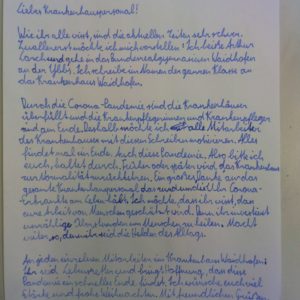 Liebes Krankenhauspersonal!
Wie ihr alle wisst, sind die aktuellen Zeiten sehr schwer.
Zuallererst möchte ich mich vorstellen! Ich heiße Arthur
und gehe in das Bundesrealgymnasium Waidhofen
an der Ybbs. Ich schreibe im Namen der ganzen Klasse an
das Krankenhaus Waidhofen.
Durch die Corona-Pandemie sind die Krankenhäuser
überfüllt und die Krankenpflegerinnen und Krankenpfleger
sind am Ende. Deshalb möchte ich alle Mitarbeiter
des Krankenhauses mit diesem Schreiben motivieren. Alles
findet mal ein Ende. Auch diese Pandemie. Also bitte ich
euch, haltet durch. Früher oder später wird das Krankenhaus
zur Normalität zurückkehren. Ein großes Danke an das
gesamte Krankenhauspersonal, das rund um die Uhr Corona-
Erkrankte am Leben hält. Ich möchte, dass ihr wisst, dass
eure Arbeit von Menschen geschätzt wird. Denn ihr investiert
unzählige Stunden um Menschen zu heilen. Macht
weiter so, denn ihr seid die Helden des Alltags.
An jeden einzelnen Mitarbeiter im Krankenhaus Waidhofen:
Ihr seid Lebensretter und bringt Hoffnung, dass diese
Pandemie ein schnelles Ende findet. Ich wünsche euch viel
Glück und frohe Weihnachten. Mit freundlichen Grüßen